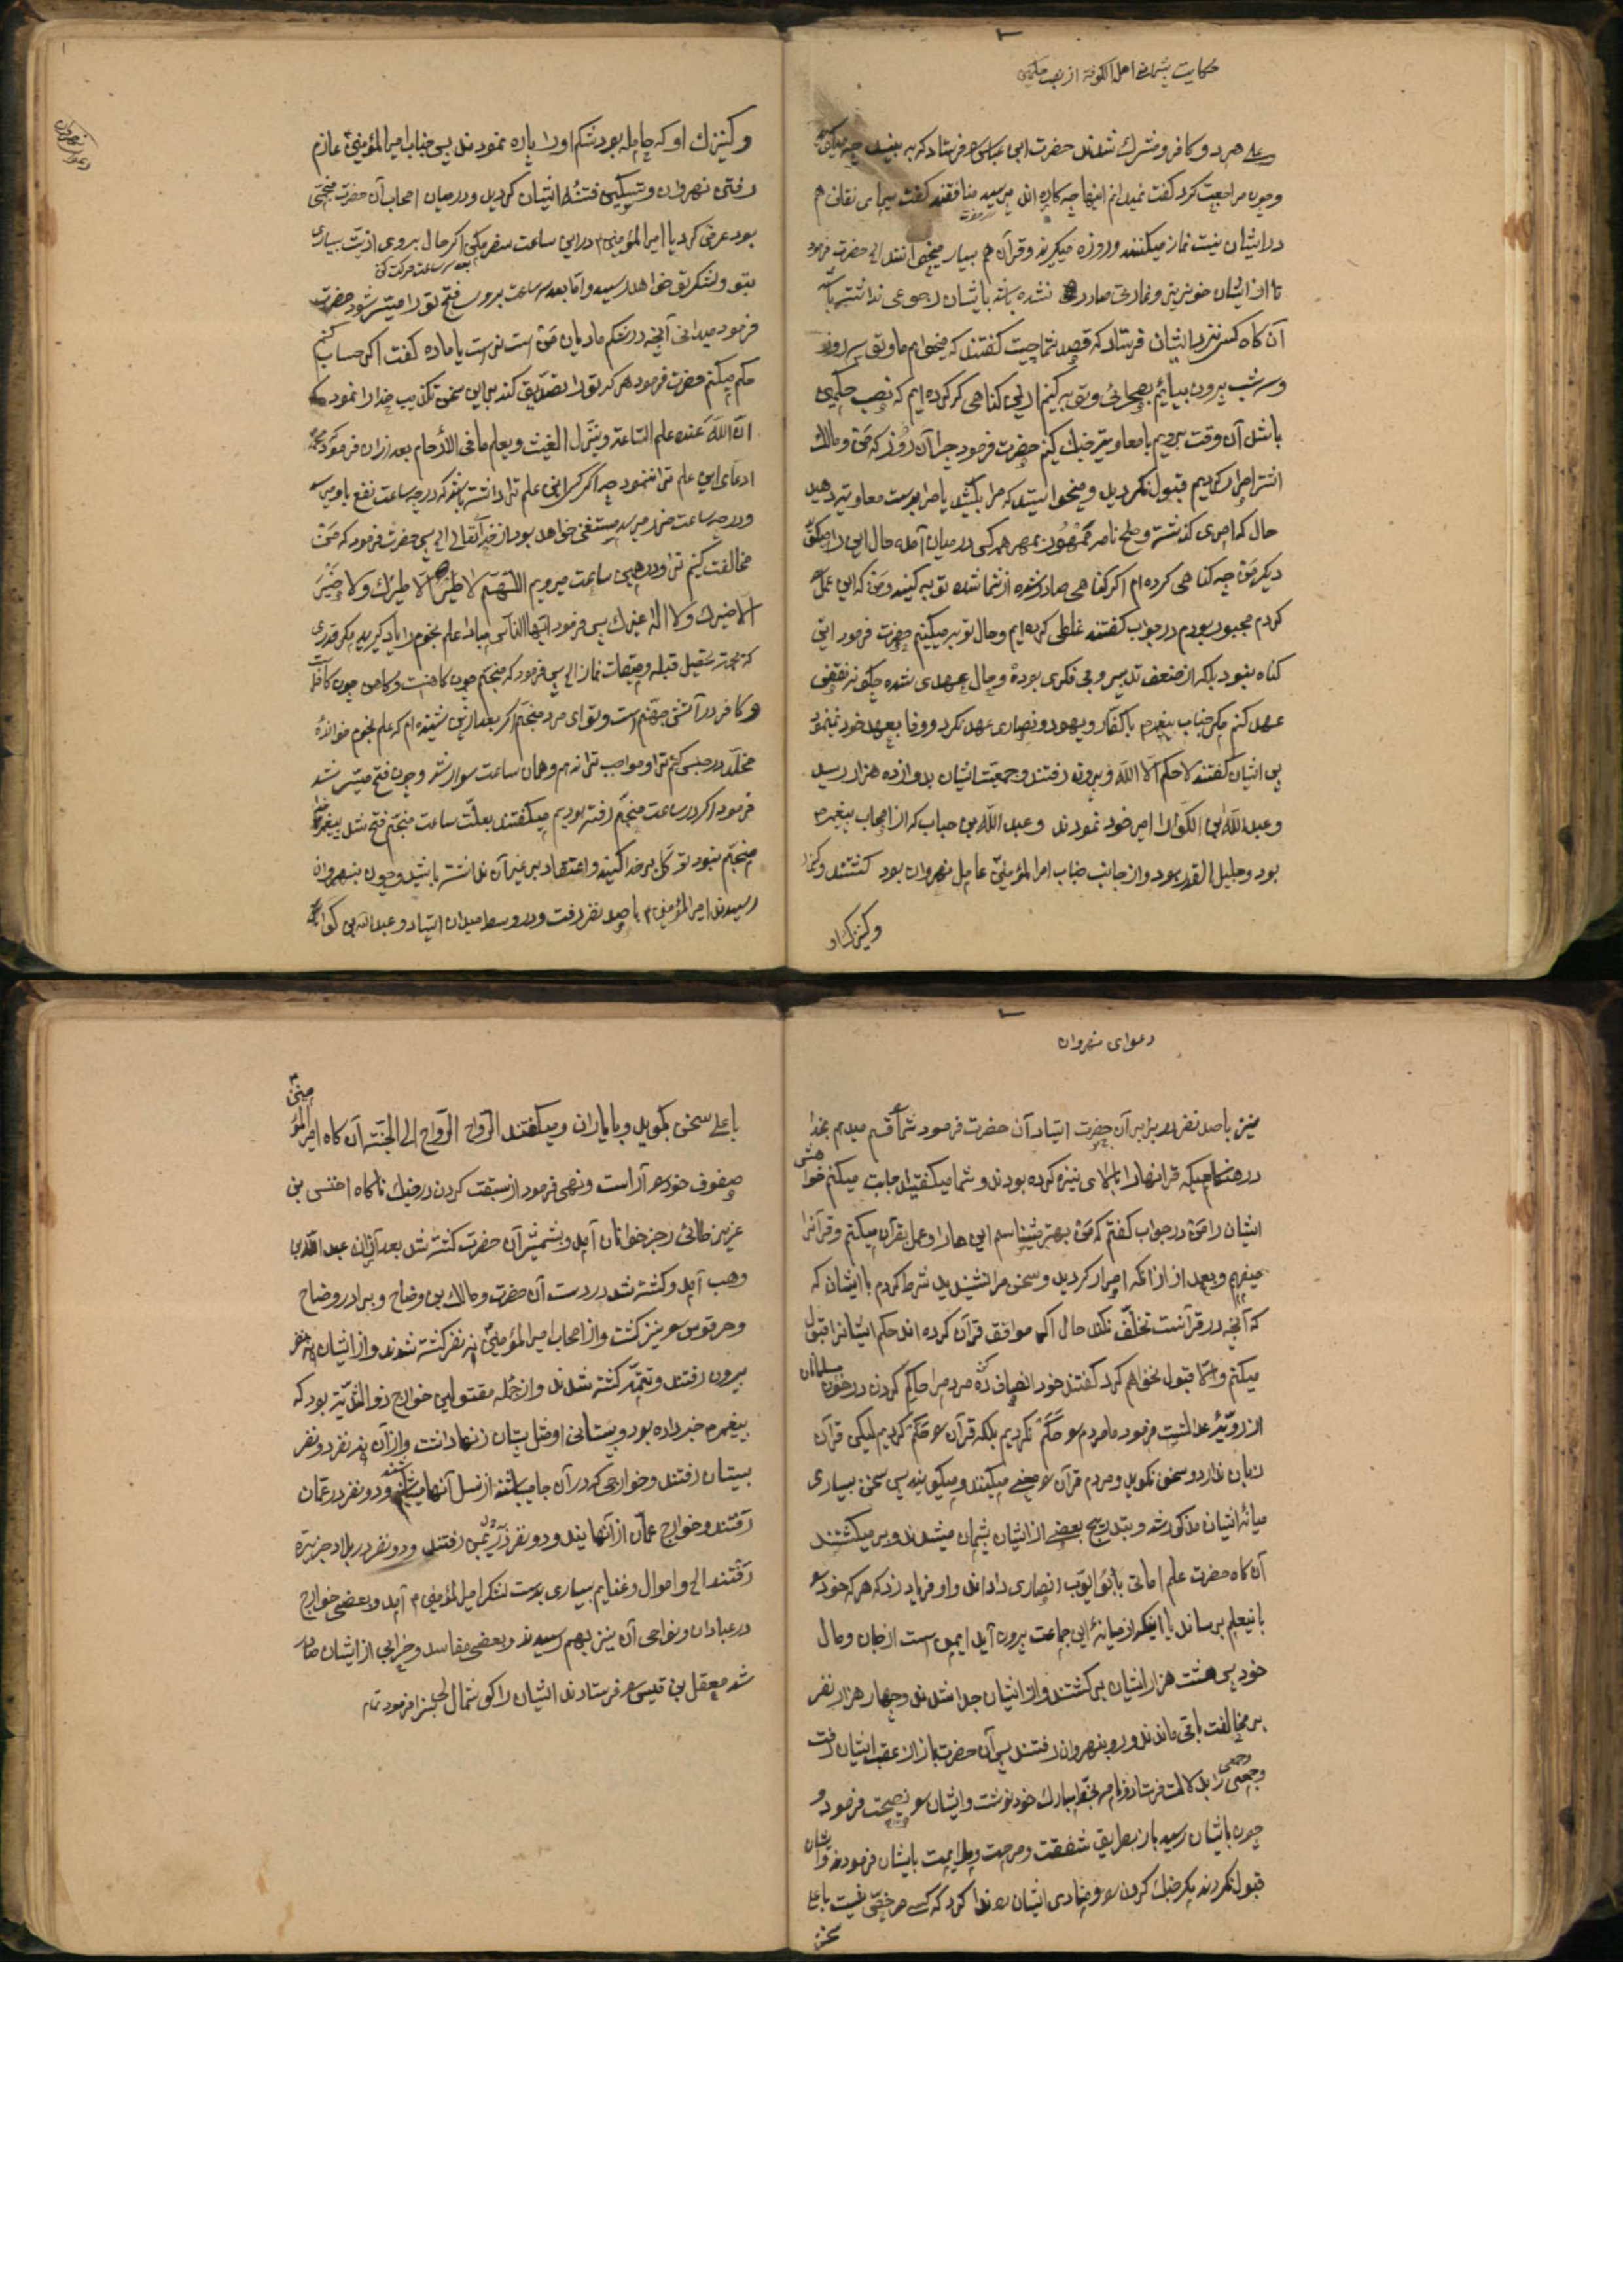 حکایت پشیمانی اهل الکوفة از نصب حکمین
وعلی هر دو کافر و مشرک شدند حضرت ابن عباس را فرستاد که به بیند چه میگویند
وچون مراجعت کرد گفت نمیدانم اینها چه کاره اند پرسید منافقند گفت سیمای نفاق هم
در ایشان نیست نماز میکنند و روزه میگیرند و قرآن هم بسیار میخوانند الی حضرت فرمود
تا از ایشان خونریزی و غارتی صادر نشده باشد بایشان رجوعی نداشته باشید
آن کاه کس نزد ایشان فرستاد که قصد شما چیست گفتند که میخواهم ما و تو سه روز
و سه شب بیرون بیائیم بصحرائی و توبه کنیم از این کناهی که کرده ایم که نصب حکمین
باشد آن وقت برویم با معاویه جنک کنیم حضرت فرمود چرا آن روز که من و مالک
اشتر اصرار کردیم قبول نکردید و میخواستید که مرا بکشید یا مرا بدست معاویه دهید
حال که امری کذشته و صلح نامه ممهور بمهر همه کس در میان آمده حال این را میکوئید
دیکر من چه کناهی کرده ام اکر کناهی صادر شده از شما شده توبه کنید و من که این عمل
کردم مجبور بودم در جواب گفتند غلطی کرده ایم و حال توبه میکنیم حضرت فرمود این
کناه نبود بلکه از ضعف تدبیر و بی فکری بوده و حال عهدی شده چکونه نقض
عهد کنم مکر جناب پیغمبر با کفار و یهود و نصاری عهد نکرد و وفا بعهد خود ننمود
پس ایشان گفتند لا حکم الا الله و بیرون رفتند و جمعیت ایشان بدوازده هزار رسید
و عبد الله بن الکوا را امیر خود نمودند و عبد الله بن حباب که از اصحاب پیغمبر
بود و جلیل القدر بود و از جانب جناب امیر المؤمنین عامل نهروان بود کشتند
وکنیزک او
و کنیزک او که حامله بود شکم او را پاره نمودند پس جناب امیر المؤمنین عازم
رفتن نهروان و تسکین فتنه ایشان کردید و در میان اصحاب آن حضرت منجمی
بود عرض کرد یا امیر المؤمنین در این ساعت سفر مکن اکر حال بروی اذیت بسیاری
بعد سه ساعت حرکت کن
بتو و لشکر تو خواهد رسید و اما بعد سه ساعت بروی فتح تو را میسر شود حضرت
فرمود میدانی آنچه در شکم مادیان من است نر است یا ماده گفت اکر حساب کنم
حکم میکنم حضرت فرمود هر که تو را تصدیق کند بر این سخن تکذیب خدا را نموده
ان الله عنده علم الساعة و ینزل الغیث و یعلم ما فی الأرحام بعد از ان فرمود
ادعای این علم ترا ننمود چرا اکر کسی این علم ترا دانسته باشد که در چه ساعت نفع باو میرسد
و در چه ساعت ضرر میرسد مستغنی خواهد بود از خدایتعالی الی پس حضرت فرمود که من
مخالفت کنیم ترا و در همین ساعت میرویم اللهم لا طیر الا طیرک و لا ضیر
الا ضیرک و لا اله غیرک پس فرمود ایها الناس مبادا علم نجوم را یاد کیرید مکر قدری
که بجهت تحصیل قبله و میقات نماز الی پس فرمود که منجم چون کاهنست و کاهن چون کافر است
و کافر در آتش جهنم است و تو ای مرد منجم اکر بعد از این شنیدم که علم نجوم خوانده
مخلد در حبس کنم ترا و مواجب ترا ندهم و همان ساعت سوار شد و چون فتح میسر شد
فرمود اکر در ساعت منجم رفته بودیم میکفتند بعلت ساعت منجم فتح شد پیغمبر را
منجم نبود توکل بر خدا کنید و اعتقاد بر غیر آن نداشته باشید و چون بنهروان
رسیدند امیر المؤمنین با صد نفر رفت و در وسط میدان ایستاد و عبد الله بن کوا
دعوای نهروان
نیز با صد نفر در برابر آن حضرت ایستاد آن حضرت فرمود شما را قسم میدهم بخدا
در هنکامیکه قرانها را بالای نیزه کرده بودند و شما میکفتید اجابت میکنم خواهش
ایشان را من در جواب کفتم که من بهتر میشناسم این ها را و عمل بقرآن میکنم و قرآنرا
میفهمم و بعد از ان که اصرار کردید و سخن مرا نشنیدید شرط کردم با ایشان که
که آنچه در قرآنست تخلف نکند حال اکر موافق قرآن کرده اند حکم ایشانرا قبول
میکنم و الا قبول نخواهم کرد کفتند خود انصاف ده مردم را حاکم کردن در خون مسلمانان
از رویه عدالتست فرمود ما مردم را حکم نکردیم بلکه قرآن را حکم کردیم لیکن قرآن
زبان ندارد و سخن نکوید و مردم قرآن را معنی میکنند و میکویند پس سخن بسیاری
میانه ایشان مذکور شد و بتدریج بعضی از ایشان پشیمان میشدند و بر میکشتند
آن کاه حضرت علم امانی بابو ایوب انصاری دادند و او فریاد زد که هر که خود را
باین علم برساند یا اینکه از میانه این جماعت بیرون آید ایمن است از جان و مال
خود پس هشت هزار ایشان بر کشتند و از ایشان جدا شدند و چهار هزار نفر
بر مخالفت باقی ماندند و رو بنهروان رفتند پس آن حضرت باز از عقب ایشان رفت
و جمعی را بدلالت فرستاد و نامه بخط مبارک خود نوشت و ایشان را نصیحت فرمود و
چون بایشان رسید باز بطریق شفقت و مرحمت و ملایمت بایشان فرمودند و ایشان
قبول نکردند مکر جنک کردن را و منادی ایشان ندا کرد که کسی مرخص نیست با علی
سخن
با علی سخن بکوید و با یاران و میکفتند الرواح الرواح الی الجنة آن کاه امیر المؤمنین
صفوف خود را آراست و نهی فرمود از سبقت کردن در جنک ناکاه اخنس بن
عزیز طائی رجز خوانان آمد و بشمشیر آن حضرت کشته شد بعد از ان عبد الله بن
وهب آمد و کشته شد در دست آن حضرت و مالک بن وضاح و برادر وضاح
و حرقوس را نیز کشت و از اصحاب امیر المؤمنین نه نفر کشته شدند و از ایشان نه نفر
بیرون رفتند و تتمه کشته شدند و از جمله مقتولین خوارج ذو الثدیه بود که
پیغمبر خبر داده بود و پستانی او مثل پستان زنها داشت و از آن نه نفر دو نفر
بسیستان رفتند و خوارجی که در آن جا میباشند از نسل آنها میباشند و دو نفر در عمان
رفتند و خوارج عمان از آنهایند و دو نفر در یمن رفتند و دو نفر در بلاد جزیره
رفتند الی و اموال و غنایم بسیاری بدست لشکر امیر المؤمنین آمد و بعضی خوارج
در عبادان و نواحی آن نیز بهم رسیدند و بعضی مفاسد و خرابی از ایشان صادر
شد معقل بن قیس را فرستادند ایشان را کوشمال بسزا فرمود تمام